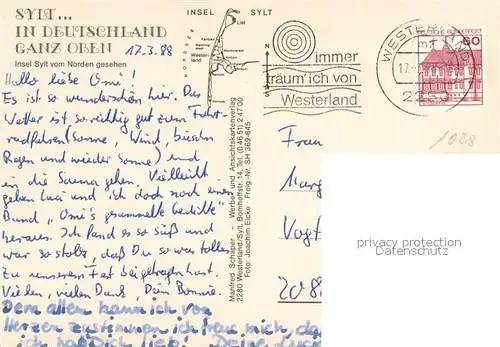 SYLT...
IN DEUTSCHLAND
GANZ OBEN 17.3.88
Insel Sylt vom Norden gesehen
Hallo liebe Omi!
Es ist so wunderschön hier. Das
Wetter ist so richtig gut zum Fahr-
radfahren (Sonne, Wind, bisschen
Regen und wieder Sonne) und
in die Sauna gehen. Vielleicht
geben Luci und ich doch noch einen
Band "Omi's gesammelte Gedichte"
heraus. Ich fand es so süß und
war so stolz, daß Du so was tolles
zu unserem Fest beigetragen hast.
Vielen, vielen Dank, Dein Bonnie.
Dem allen kann ich von
Herzen zustimmen ich freue mich, da
ich hab Dich lieb! Deine
INSEL SYLT
List
Kampen
Westerland
NORDSEE
Manfred Schäper – Werbe- und Ansichtskartenverlag
2280 Westerland/Sylt, Bomhoffstr. 14, Tel. (0 46 51) 2 47 00
Foto: Joachim Eicke · Freig.-Nr. SH 369-645
immer
träum' ich von
Westerland
WESTERLAND
17.-
2280
DEUTSCHE BUNDESPOST
60
1088
Frau
Marg
Vogt
208
privacy protection
Datenschutz